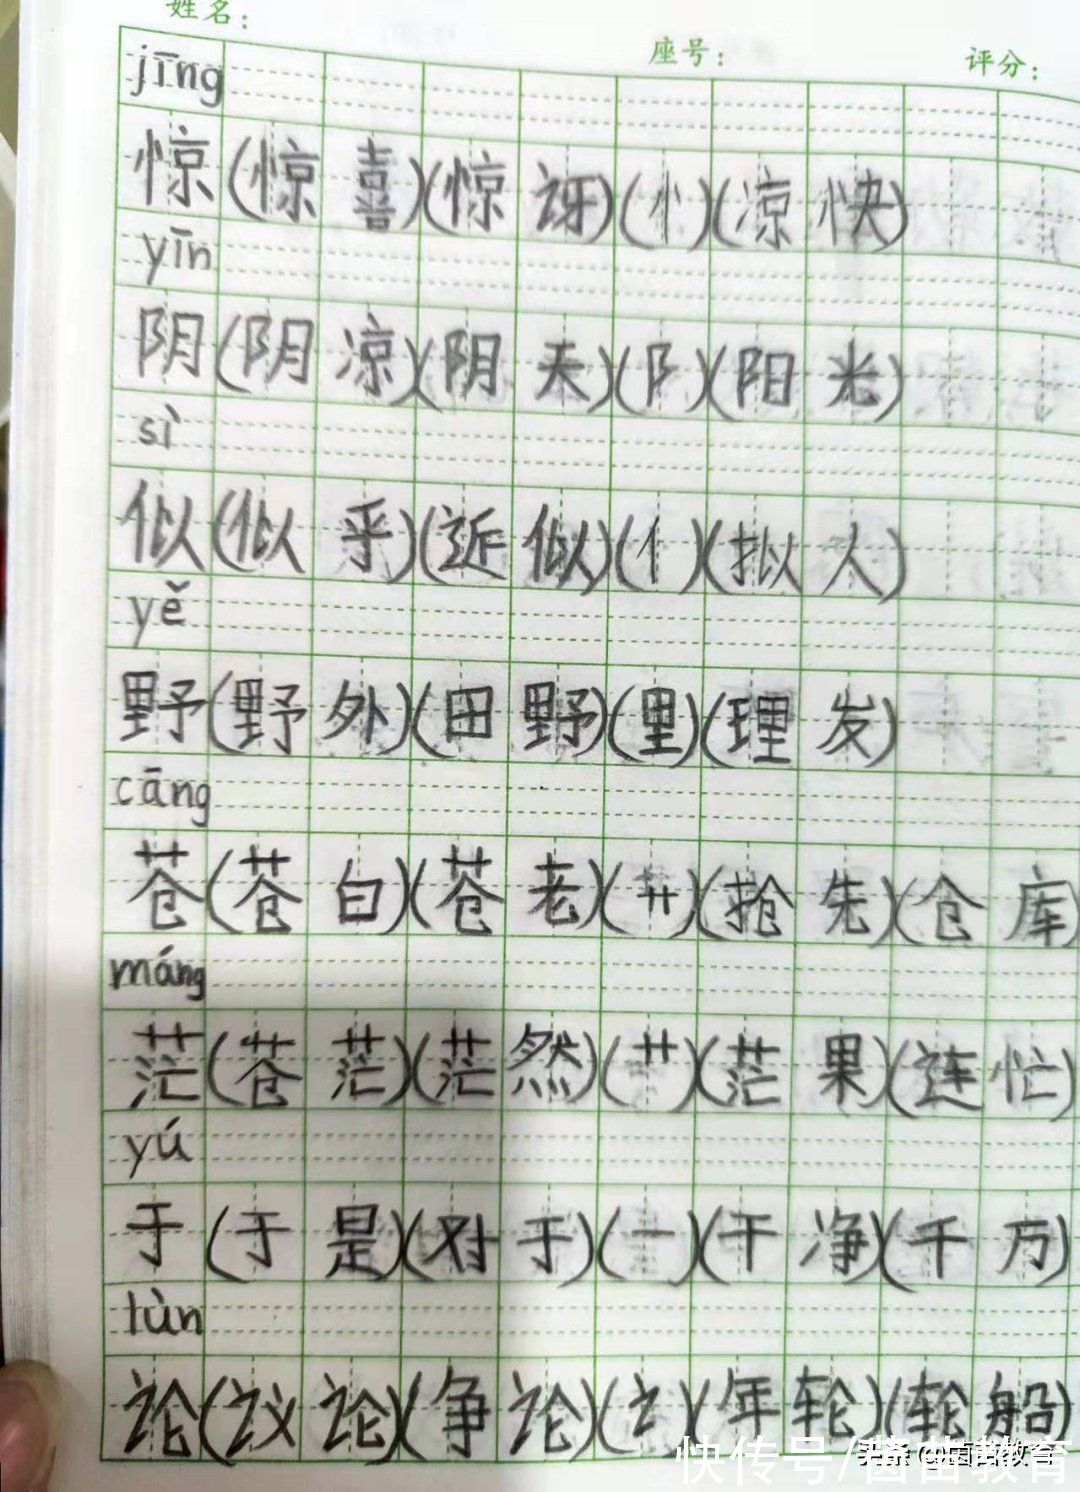 姓名：
座号： 评分：
jīng
惊(惊喜)(惊讶)(忄)(凉快)
yīn
阴(阴凉)(阴天)(阝)(阳光)
sì
似(似乎)(近似)(亻)(拟人)
yě
野(野外)(田野)(里)(理发)
cāng
苍(苍白)(苍老)(艹)(抢先)(仓库)
máng
茫(苍茫)(茫然)(艹)(芒果)(连忙)
yú
于(于是)(对于)(一)(干净)(千万)
lùn
论(议论)(争论)(讠)(年轮)(轮船)
快传号/茵茵教育
头条 @茵茵教育